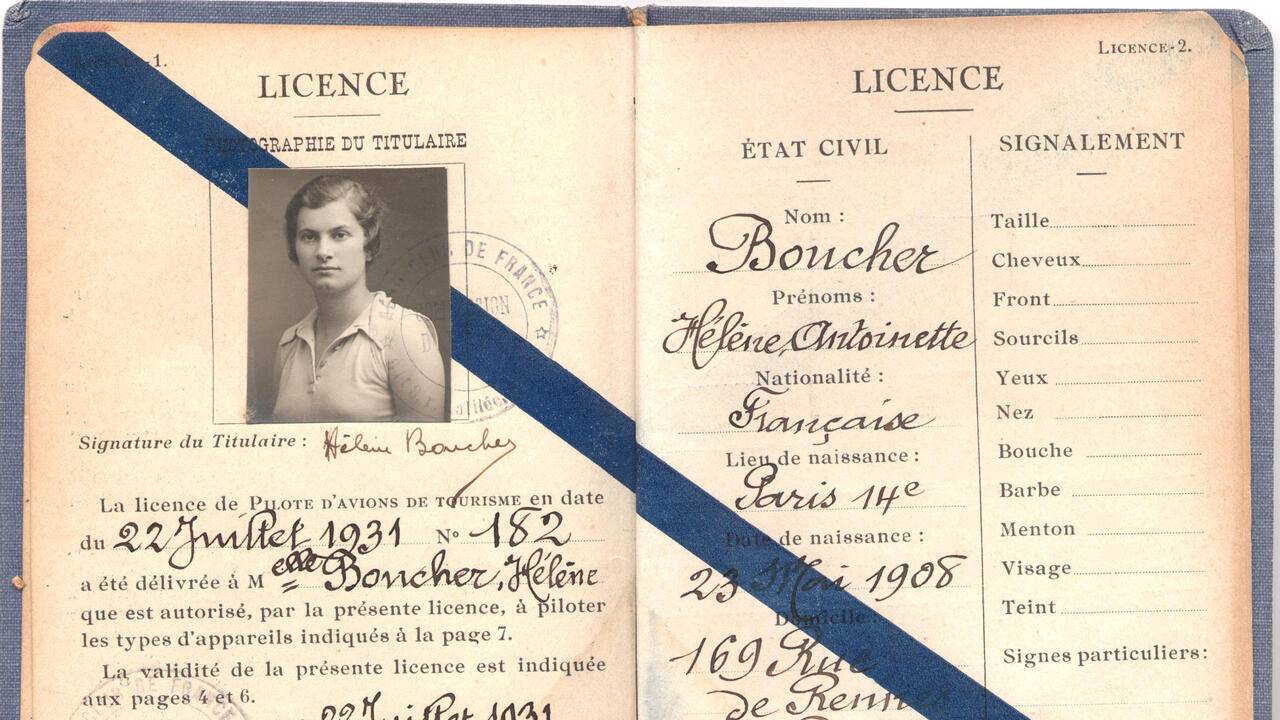 -1.
LICENCE
PHOTOGRAPHIE DU TITULAIRE
DE FRANCE
Signature du Titulaire : Hélène Boucher
La licence de PILOTE D'AVIONS DE TOURISME en date
du 22 Juillet 1931 N° 182
a été délivrée à Melle Boucher, Hélène
que est autorisé, par la présente licence, à piloter
les types d'appareils indiqués à la page 7.
La validité de la présente licence est indiquée
aux pages 4 et 6.
22 Juillet 1931
LICENCE-2.
LICENCE
ÉTAT CIVIL
Nom :
Boucher
Prénoms :
Hélène, Antoinette
Nationalité :
Française
Lieu de naissance :
Paris 14e
Date de naissance :
23 Mai 1908
Domicile :
169 Rue
de Rennes
SIGNALEMENT
Taille
Cheveux
Front
Sourcils
Yeux
Nez
Bouche
Barbe
Menton
Visage
Teint
Signes particuliers: